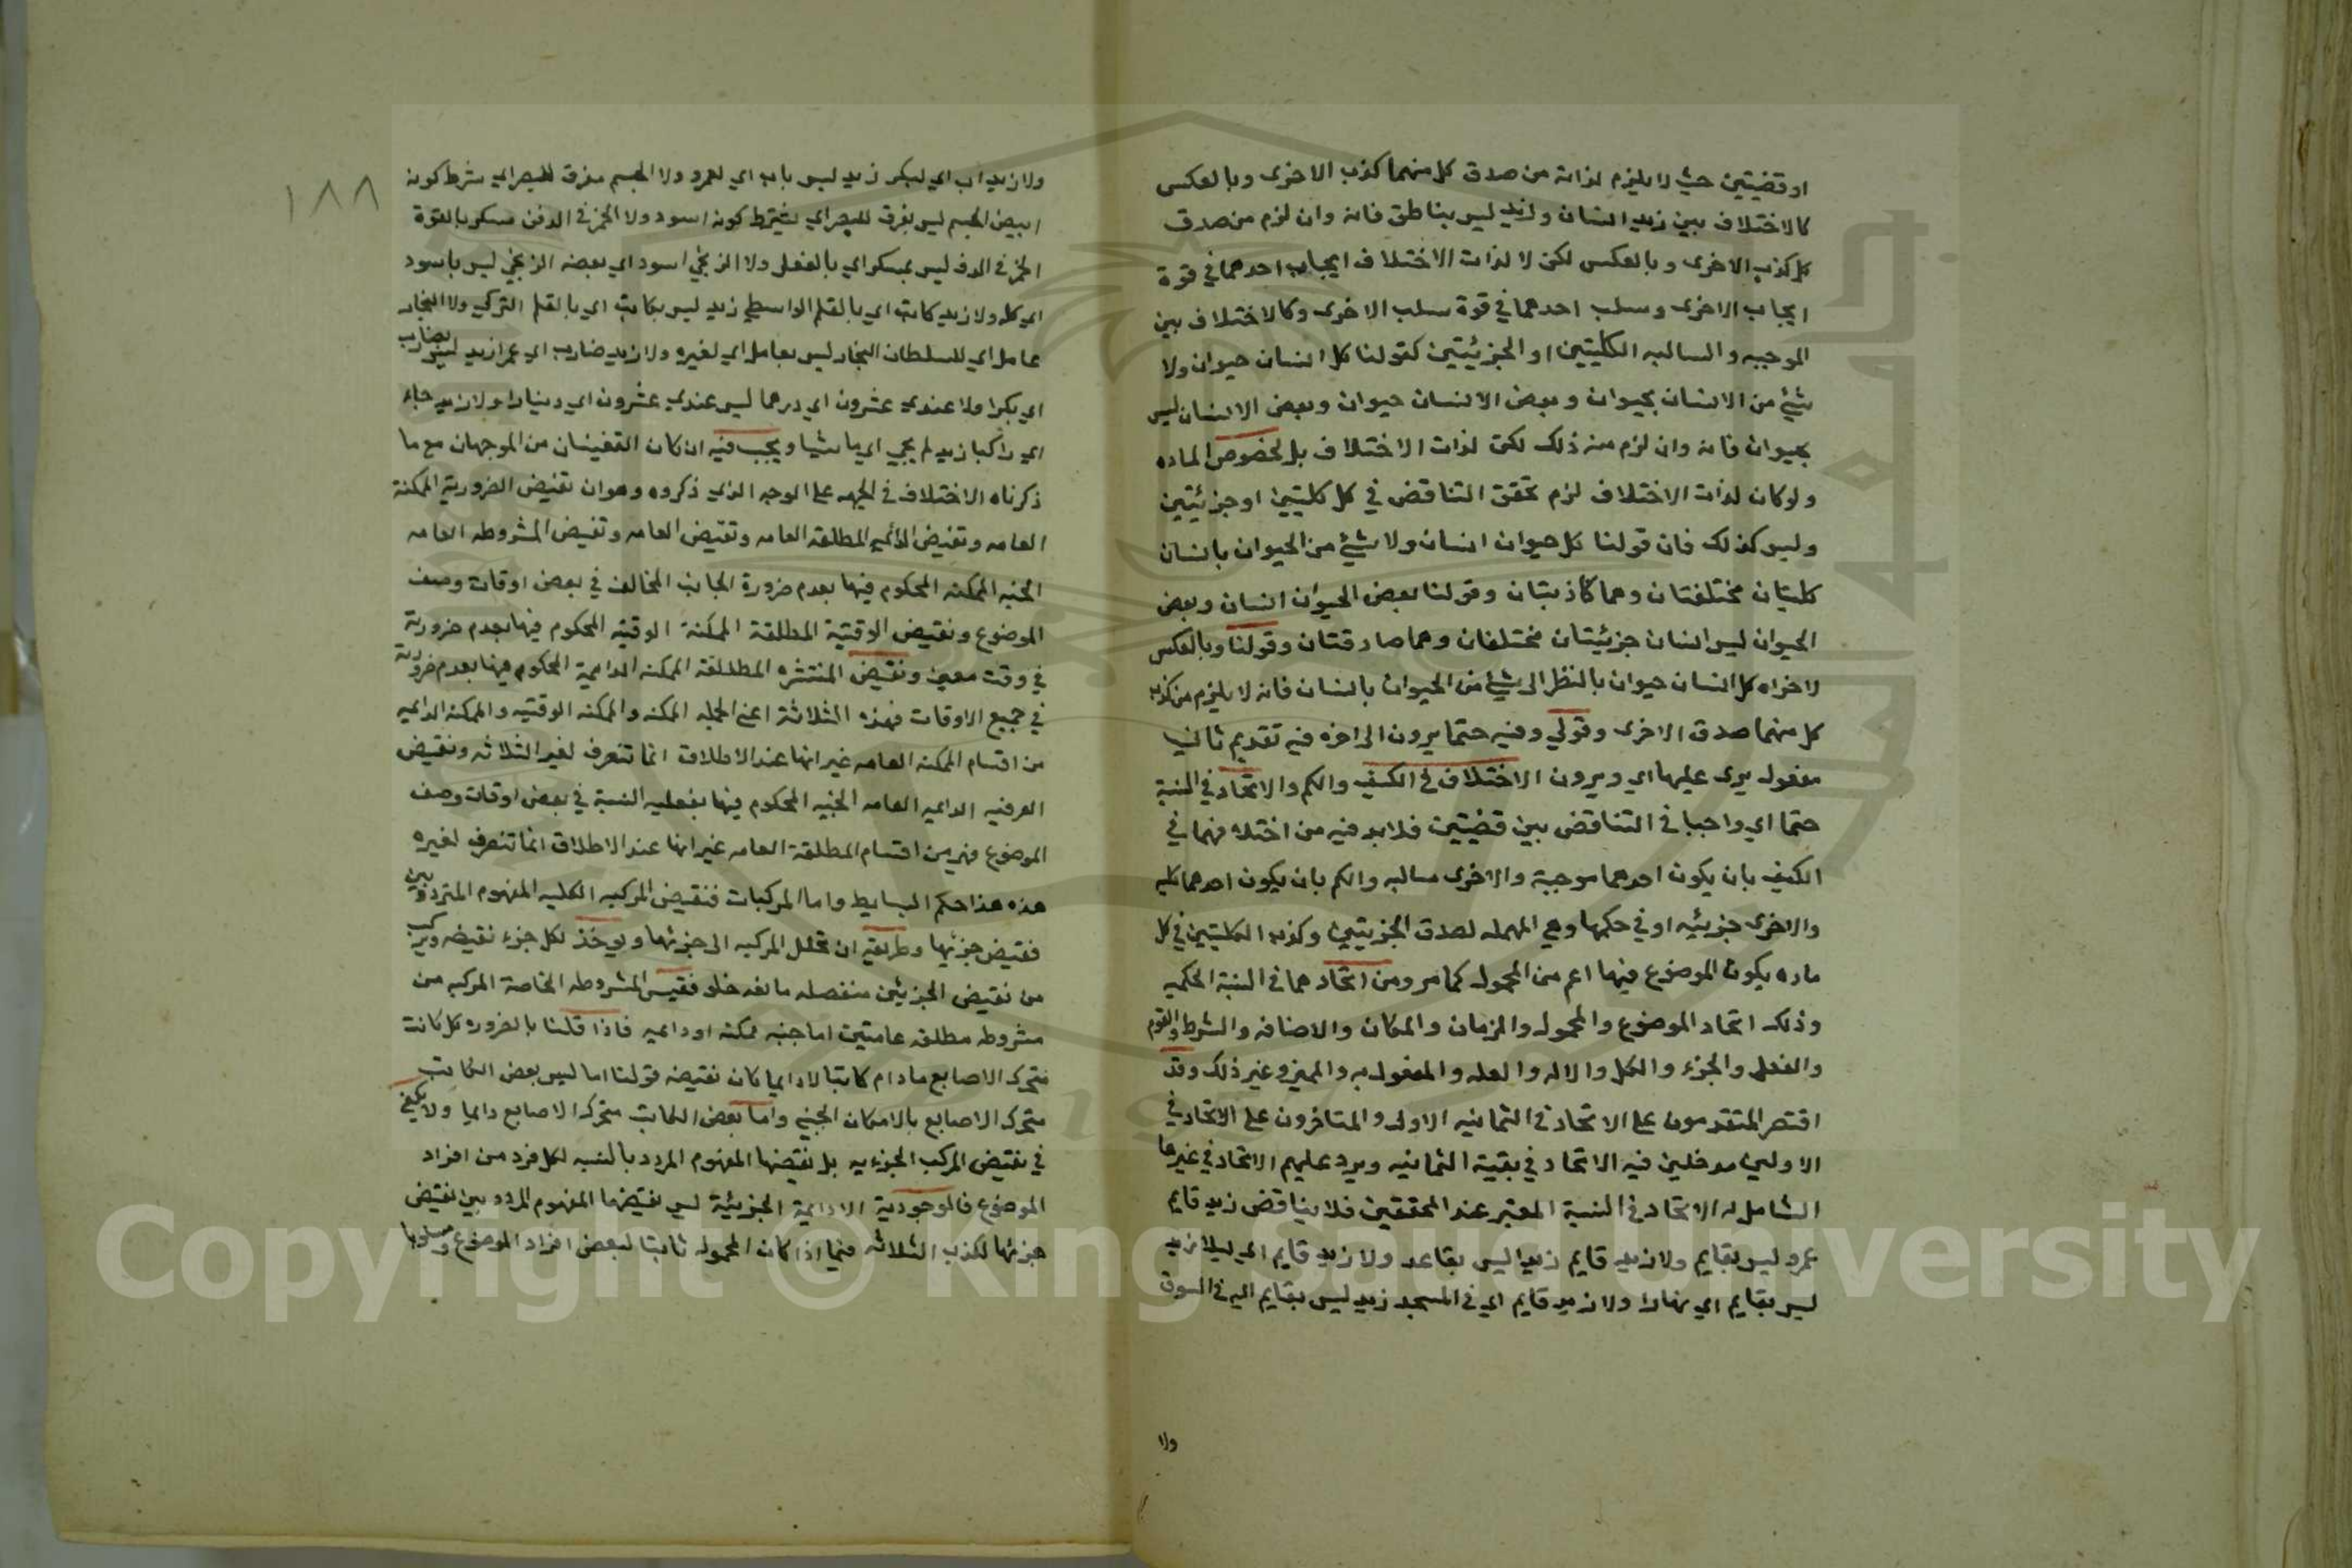 او قضيتين حيث لا يلزم لذاته من صدق كل منهما كذب الاخرى وبالعكس
كالاختلاف بين زيد انسان وزيد ليس بناطق فانه وان لزم من صدق
كل كذب الاخرى وبالعكس لكن لا لذات الاختلاف ايجاب احدهما في قوة
ايجاب الاخرى وسلب احدهما في قوة سلب الاخرى وكالاختلاف بين
الموجبه والسالبه الكليتين او الجزئيتين كقولنا كل انسان حيوان ولا
شيئ من الانسان بحيوان وبعض الانسان حيوان وبعض الانسان ليس
بحيوان فانه وان لزم منه ذلك لكن لذات الاختلاف بل لخصوص الماده
ولو كان لذات الاختلاف لزم تحقق التناقض في كل كليتين او جزئيتين
وليس كذلك فان قولنا كل حيوان انسان ولا شيئ من الحيوان بانسان
كليتان مختلفتان وهما كاذبتان وقولنا بعض الحيوان انسان وبعض
الحيوان ليس انسان جزئيتان مختلفان وهما صادقتان وقولنا وبالعكس
لاخراه كل انسان حيوان بالنظر الى شيئ من الحيوان بانسان فانه لا يلزم من كذب
كل منهما صدق الاخرى وقولي وفيه حتما يرون الى اخره فيه تقديم ثانيا
مفعول يرى عليها اي ويرون الاختلاف في الكيف والكم والاتحاد في النسبة
حتما اي واجبا في التناقض بين قضيتين فلابد فيه من اختلافهما في
الكيف بان يكون احدهما موجبة والاخرى سالبه والكم بان يكون احدهما كليه
والاخرى جزئيه او في حكمها وهي المهمله لصدق الجزيتين وكذب الكليتين في كل
ماده يكون الموضوع فيها اعم من المحمول كما مر ومن اتحادهما في النسبة الحكميه
وذلك اتحاد الموضوع والمحمول والزمان والمكان والاضافه والشرط والقوه
والفعل والجزء والكل والاله والعله والمفعول به والمميز وغير ذلك وقد
اقتصر المتقدمون على الاتحاد في الثمانيه الاول والمتاخرون على الاتحاد في
الاولين مدخلين فيه الاتحاد في بقية الثمانيه ويرد عليهم الاتحاد في غيرها
الشامل له الاتحاد في النسبة المعتبر عند المحققين فلا يناقض زيد قايم
عمرو ليس بقايم ولا زيد قايم زيد ليس بقاعد ولا زيد قايم اي ليلا زيد
ليس بقايم اي نهارا ولا زيد قايم اي في المسجد زيد ليس بقايم اي في السوق
ولا
١٨٨
ولا زيد اب اي لبكر زيد ليس باب اي لعمرو ولا الجسم مفرق للبصر اي بشرط كونه
ابيض الجسم ليس بمفرق للبصر اي بشرط كونه اسود ولا الخمر في الدن مسكر بالقوة
الخمر في الدن ليس بمسكر اي بالفعل ولا الزنجي اسود اي بعضه الزنجي ليس باسود
اي كله ولا زيد كاتب اي بالقلم الواسطي زيد ليس بكاتب اي بالقلم التركي ولا النجار
عامل اي للسلطان النجار ليس بعامل اي لغيره ولا زيد ضارب اي عمرا زيد ليس بضارب
اي بكرا ولا عندي عشرون اي درهما ليس عندي عشرون اي دينارا ولا زيد جاء
اي راكبا زيد لم يجي اي ماشيا ويجب فيه ان كان القضيتان من الموجهات مع ما
ذكرناه الاختلاف في الجهه على الوجه الذي ذكروه وهو ان نقيض الضرورية الممكنة
العامه ونقيض الدائمه المطلقة العامه ونقيض العامه ونقيض المشروطه العامه
الحينيه الممكنه المحكوم فيها بعدم ضرورة الجانب المخالف في بعض اوقات وصف
الموضوع ونقيض الوقتية المطلقة الممكنة الوقتيه المحكوم فيها بعدم ضرورية
في وقت معين ونقيض المنتشره المطلقة الممكنه الدايمية المحكوم فيها بعدم ضرورية
في جميع الاوقات فهذه الثلاثة اعني الممكنه والممكنه الوقتيه والممكنه الدايميه
من اقسام الممكنه العامه غير انها عند الاطلاق انما تنصرف لغير الثلاثه ونقيض
العرفيه الدايميه العامه الحينيه المحكوم فيها بفعليه النسبة في بعض اوقات وصف
الموضوع فهي من اقسام المطلقة العامه غير انها عند الاطلاق انما تنصرف لغيره
هذه هذا حكم البسايط واما المركبات فنقيض المركبه الكليه المفهوم المتردد بين
نقيض جزئيها وطريقه ان تحلل المركبه الى جزئيها ويوخذ لكل جزء نقيضه ويركب
من نقيض الجزئين منفصله مانعه خلو فنقيض المشروطه الخاصة المركبه من
مشروطه مطلقه عامتين اما حينيه ممكنه او دايميه فاذا قلنا بالضروره كل كاتب
متحرك الاصابع مادام كاتبا لا دايما كان نقيضه قولنا اما ليس بعض الكاتب
متحرك الاصابع بالامكان الحيني واما بعض الكاتب متحرك الاصابع دايما ولا يكفي
في نقيض المركب الجزءيه بل نقيضها المفهوم المردد بالنسبه لكل فرد من افراد
الموضوع فالوجودية الادايمية الجزئية ليس نقيضها المفهوم المردد بين نقيض
جزئها لكذب الثلاثه فيما اذا كان المحمول ثابتا لبعض افراد الموضوع ومسلوبا
Copyright © King Saud University